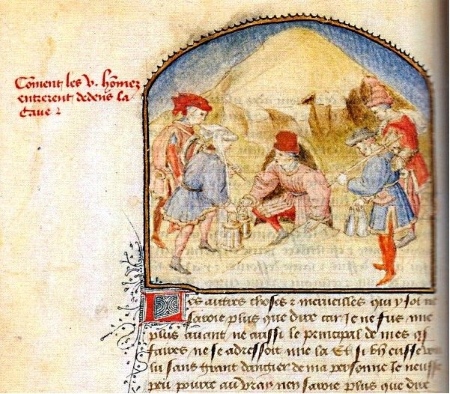 Cōment les v. hōmez
entrerent dedens la
cave
Des autres choses z merveilles qui y soi ne
savoie plus que dire car Je ne fus mie
plus avant ne aussi le principal de mes
faires ne se adressoit mie la Et si eusse
lu sans grant dangier de ma personne le neusse
peu au vray nen savoie plus que dire